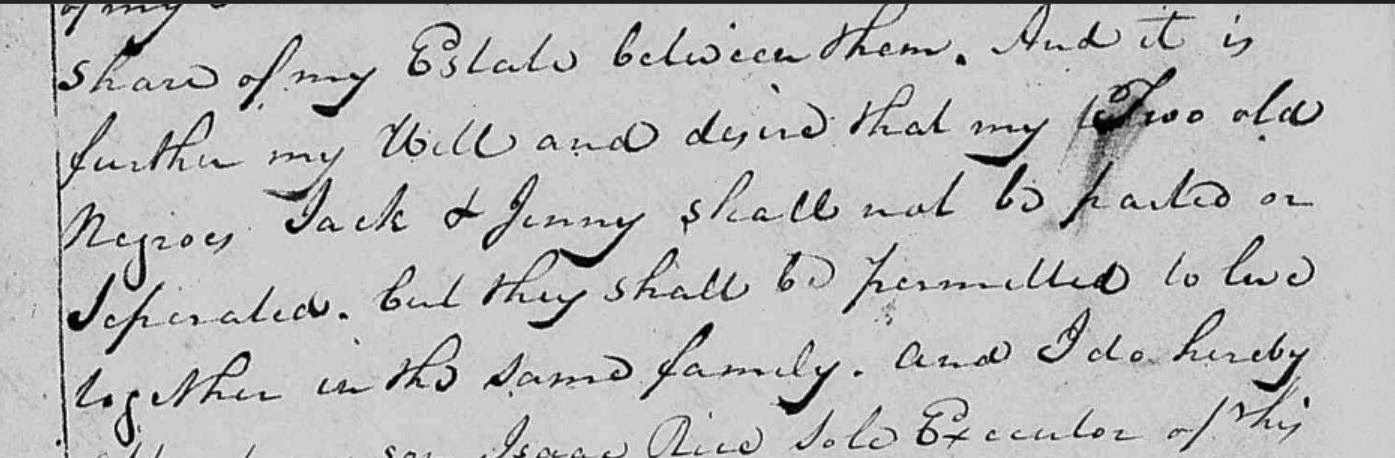 of my
share of my Estate between them. And it is
further my Will and desire that my Two old
Negroes Jack & Jenny shall not be parted or
Seperated. but they shall be permitted to live
together in the same family. and I do hereby
son Isaac Rice sole Executor of this